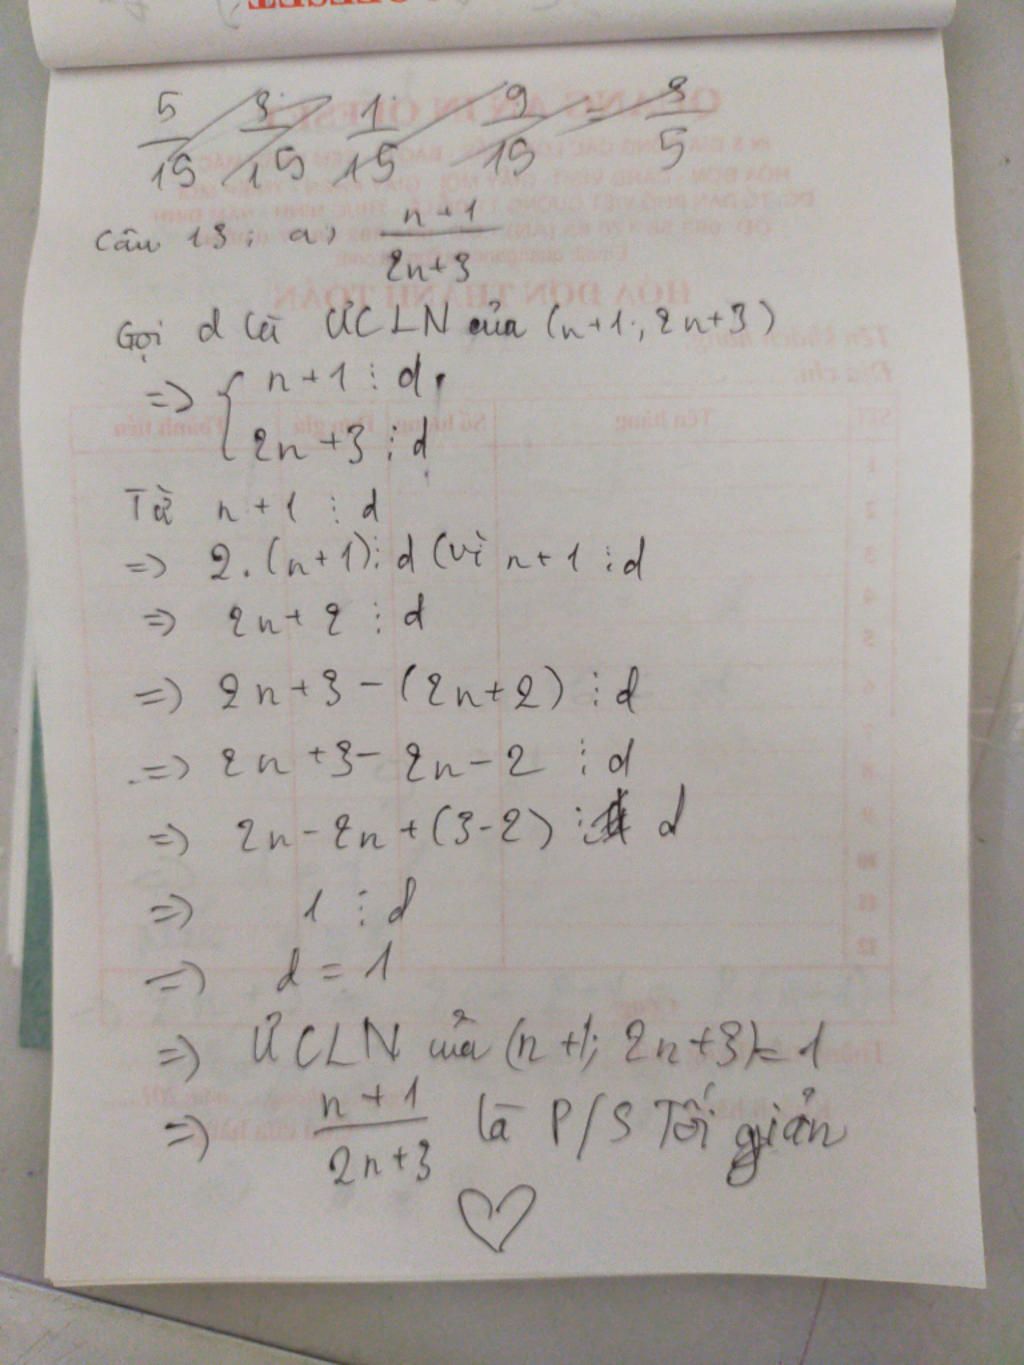 5/15 3/15 1/15 9/15 = 3/5
Câu 13: a) n+1/2n+3
Gọi d là ƯCLN của (n+1; 2n+3)
=> { n+1 ⋮ d
2n+3 ⋮ d
Từ n+1 ⋮ d
=> 2.(n+1) ⋮ d (vì n+1 ⋮ d
=> 2n+2 ⋮ d
=> 2n+3-(2n+2) ⋮ d
=> 2n+3-2n-2 ⋮ d
=> 2n-2n+(3-2) ⋮ d
=> 1 ⋮ d
=> d = 1
=> ƯCLN của (n+1; 2n+3)=1
=> n+1/2n+3 là P/S Tối giản